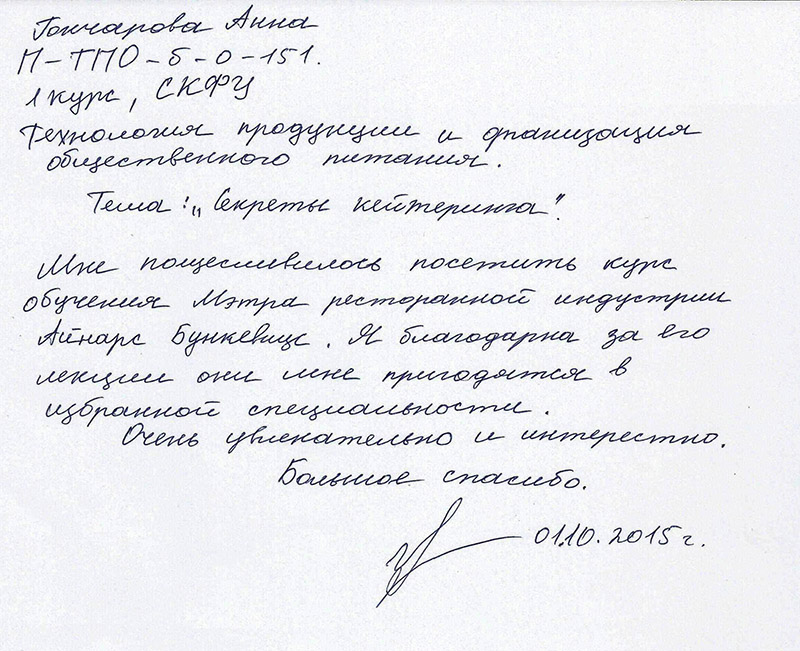 Гончарова Анна
П-ТПО-б-о-151.
1 курс, СКФУ
Технология продукции и организация
общественного питания.
Тема: „Секреты кейтеринга".
Мне пощесливилось посетить курс
обучения Мэтра ресторанной индустрии
Айнарс Бункевицс. Я благодарна за его
лекции они мне пригодятся в
избранной специальности.
Очень увлекательно и интерестно.
Большое спасибо.
01.10.2015 г.